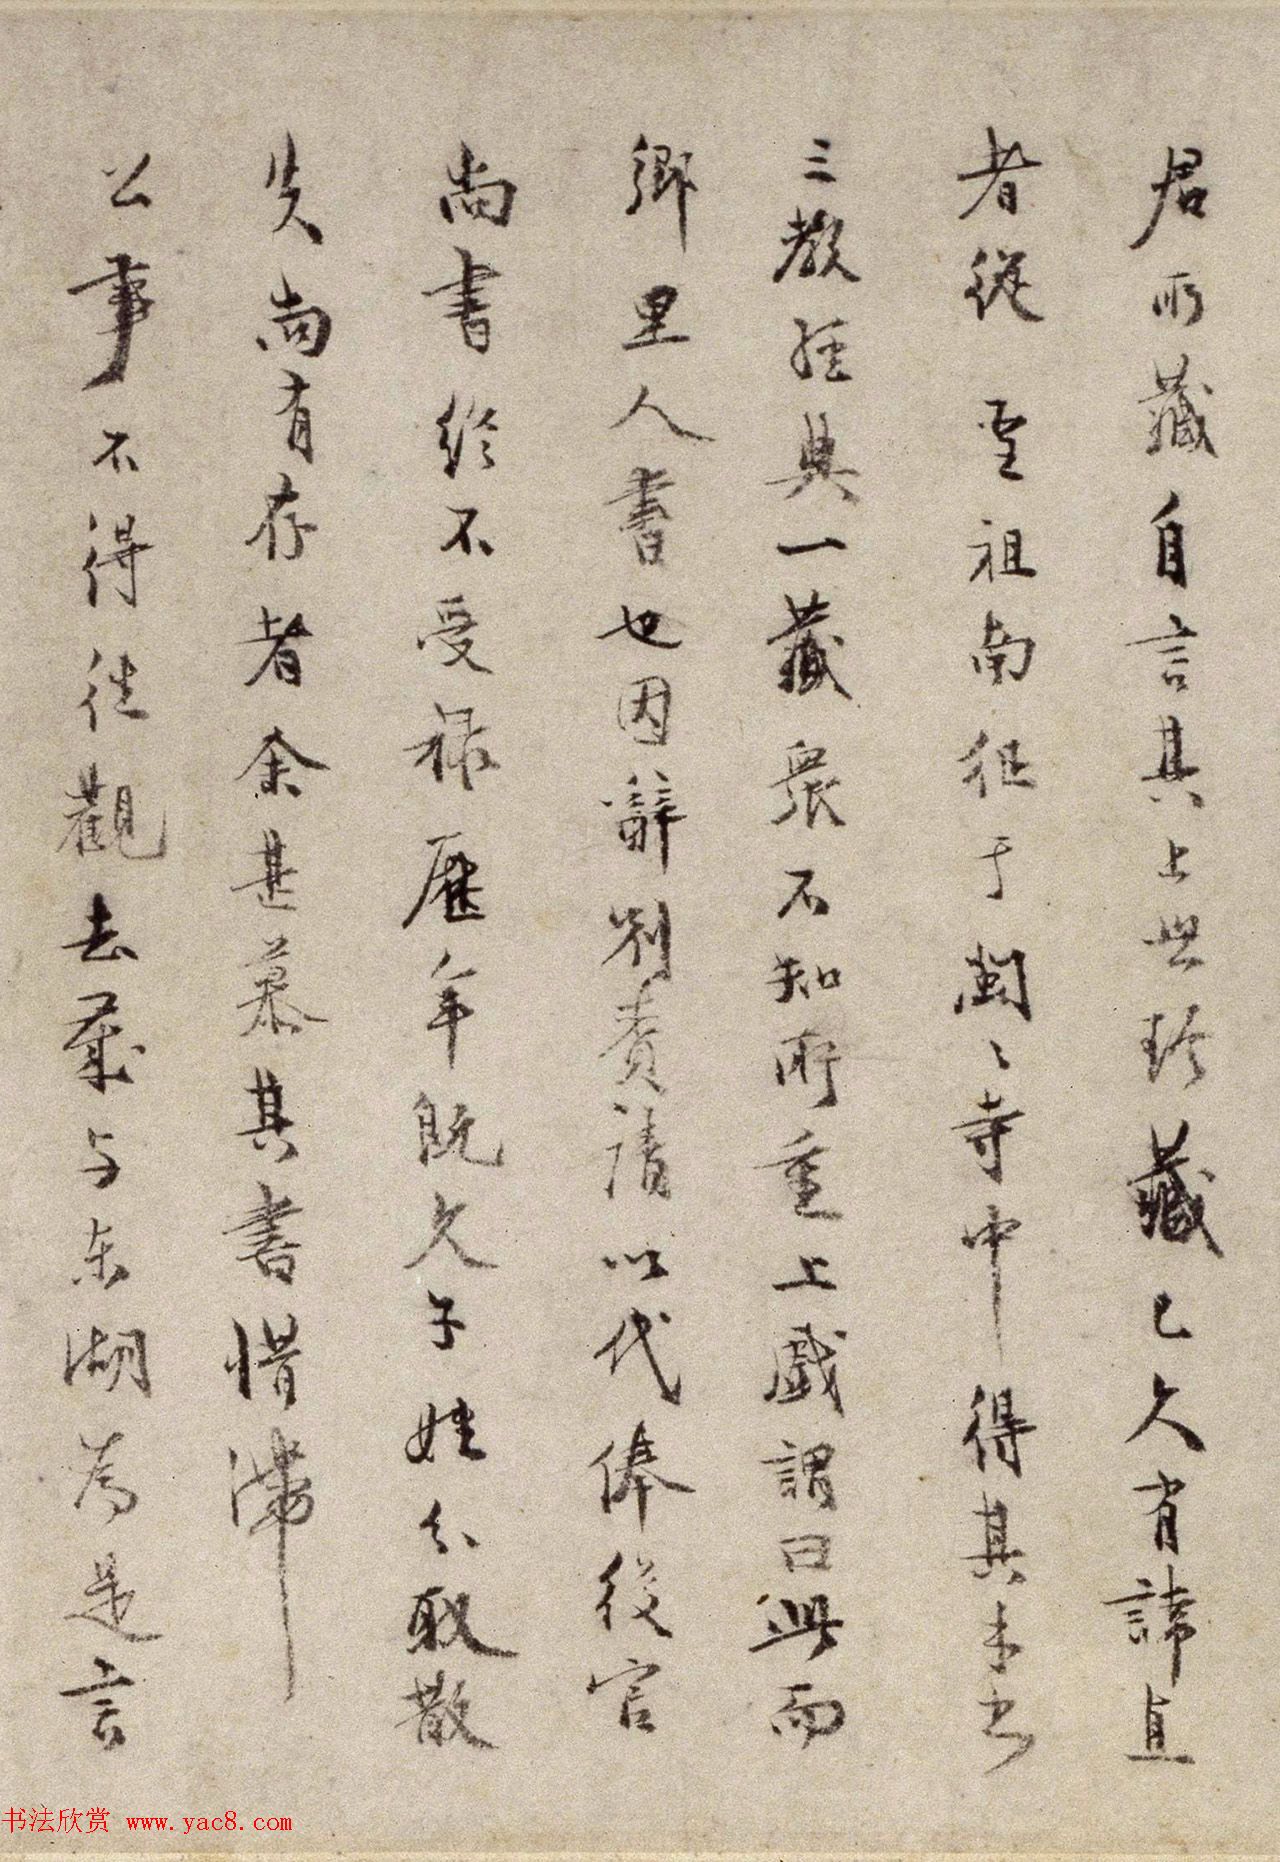 君所藏自言其上世珍藏已久有諱直
者從 聖祖南征于閩〻寺中得其木書
三教經典一藏衆不知所重上戲謂曰此而
鄉里人書也因辭別賚請以代俸後官
尚書終不受祿歷年既久子姓分取散
失尚有存者余甚慕其書惜滯
公事不得往觀去歲与東湖為是言
书法欣赏 www.yac8.com